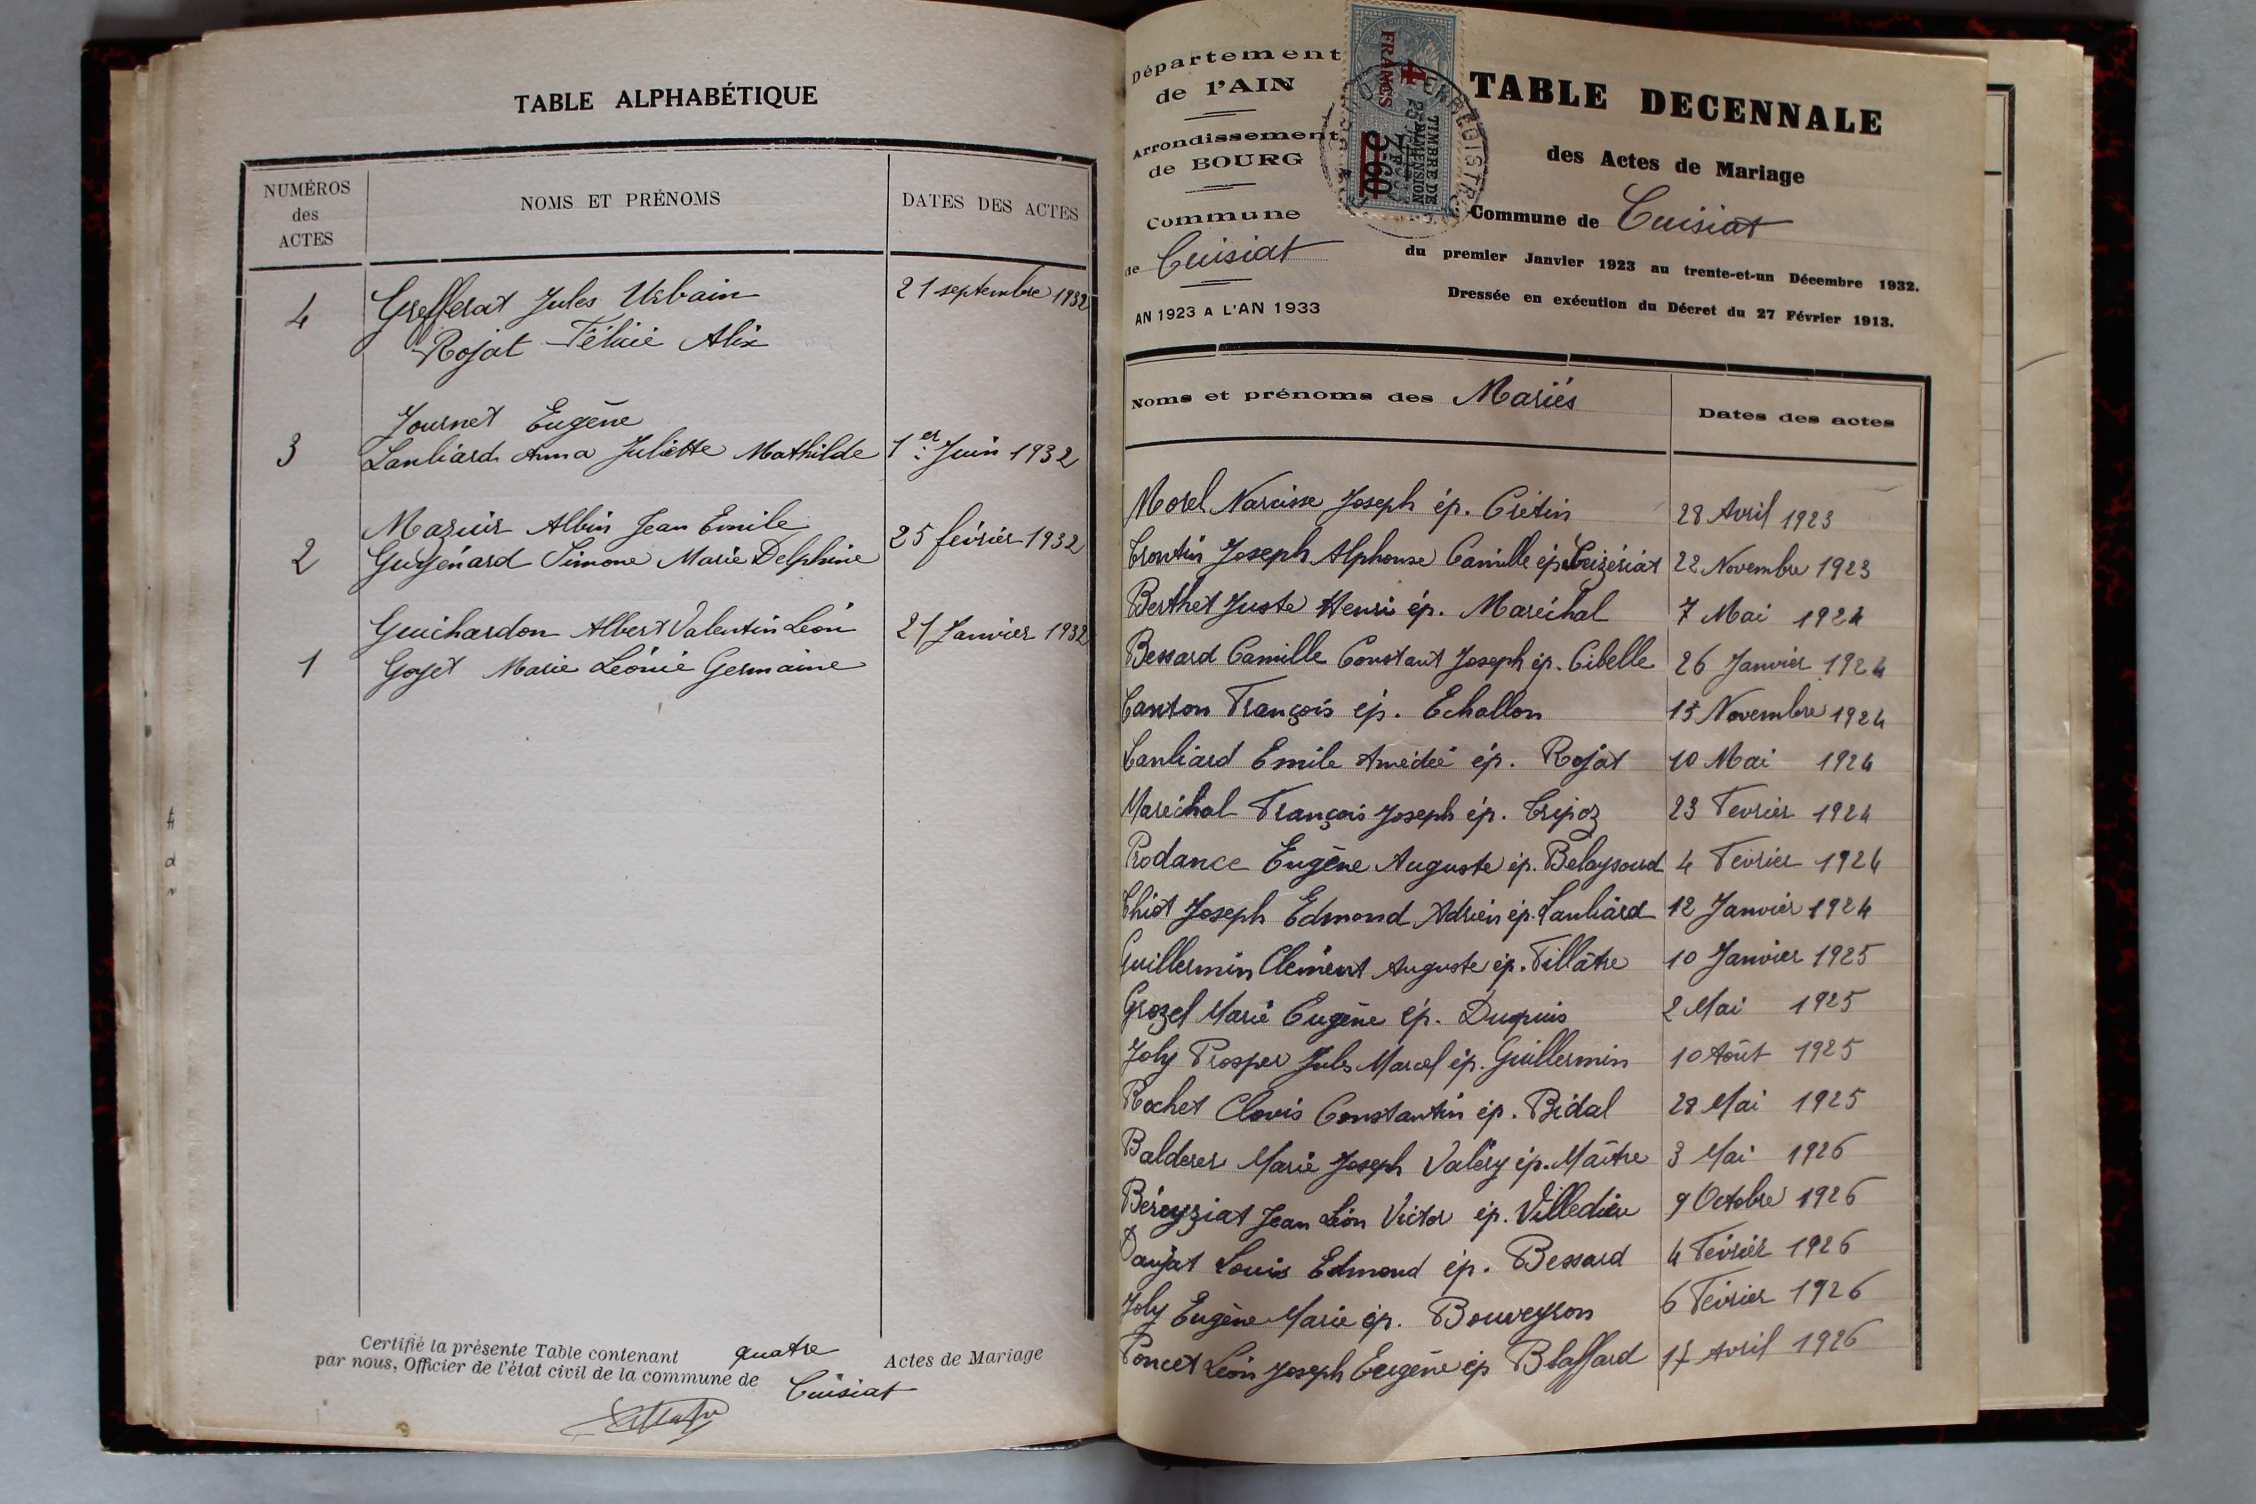 TABLE ALPHABÉTIQUE
NUMÉROS des ACTES
NOMS ET PRÉNOMS
DATES DES ACTES
4 Grefferat Jules Urbain 21 septembre 1932
Rojat Félicie Alix
Journet Eugène
3 Lanliard Anna Juliette Mathilde 1er Juin 1932
Mazuir Albin Jean Emile
2 Guyénard Simone Marie Delphine 25 février 1932
Guichardon Albert Valentin Léon 21 Janvier 1932
1 Goyet Marie Léonie Germaine
Certifié la présente Table contenant quatre Actes de Mariage
par nous, Officier de l'état civil de la commune de Cuisiat
Département
de l'AIN
Arrondissement
de BOURG
Commune
de Cuisiat
AN 1923 A L'AN 1933
4 FRANCS
TIMBRE DE DIMENSION
TABLE DECENNALE
des Actes de Mariage
Commune de Cuisiat
du premier Janvier 1923 au trente-et-un Décembre 1932.
Dressée en exécution du Décret du 27 Février 1913.
Noms et prénoms des Mariés
Dates des actes
Morel Narcisse Joseph ép. Crétin 28 Avril 1923
Joseph Alphonse Camille ép. 22 Novembre 1923
Berthet Juste Henri ép. Maréchal 7 Mai 1924
Bessard Camille Constant Joseph ép. Cibelle 26 Janvier 1924
Canton François ép. Echallon 15 Novembre 1924
Lanliard Emile Amédée ép. Rojat 10 Mai 1924
Maréchal François Joseph ép. Tripoz 23 Fevrier 1924
Prodance Eugène Auguste ép. Belaysoud 4 Février 1924
Thiot Joseph Edmond Adrien ép. Lanliard 12 Janvier 1924
Guillermin Clément Auguste ép. Fillâtre 10 Janvier 1925
Grozel Marie Eugène ép. Dupuis 2 Mai 1925
Joly Prosper Jules Marcel ép. Guillermin 10 Août 1925
Rochet Clovis Constantin ép. Bidal 28 Mai 1925
Balderer Marie Joseph Valéry ép. Maître 3 Mai 1926
Béreyziat Jean Léon Victor ép. Villedieu 9 Octobre 1926
Daujat Louis Edmond ép. Bessard 4 Février 1926
Joly Eugène Marie ép. Bouveyron 6 Février 1926
Poncet Léon Joseph Eugène ép Blaffard 17 Avril 1926